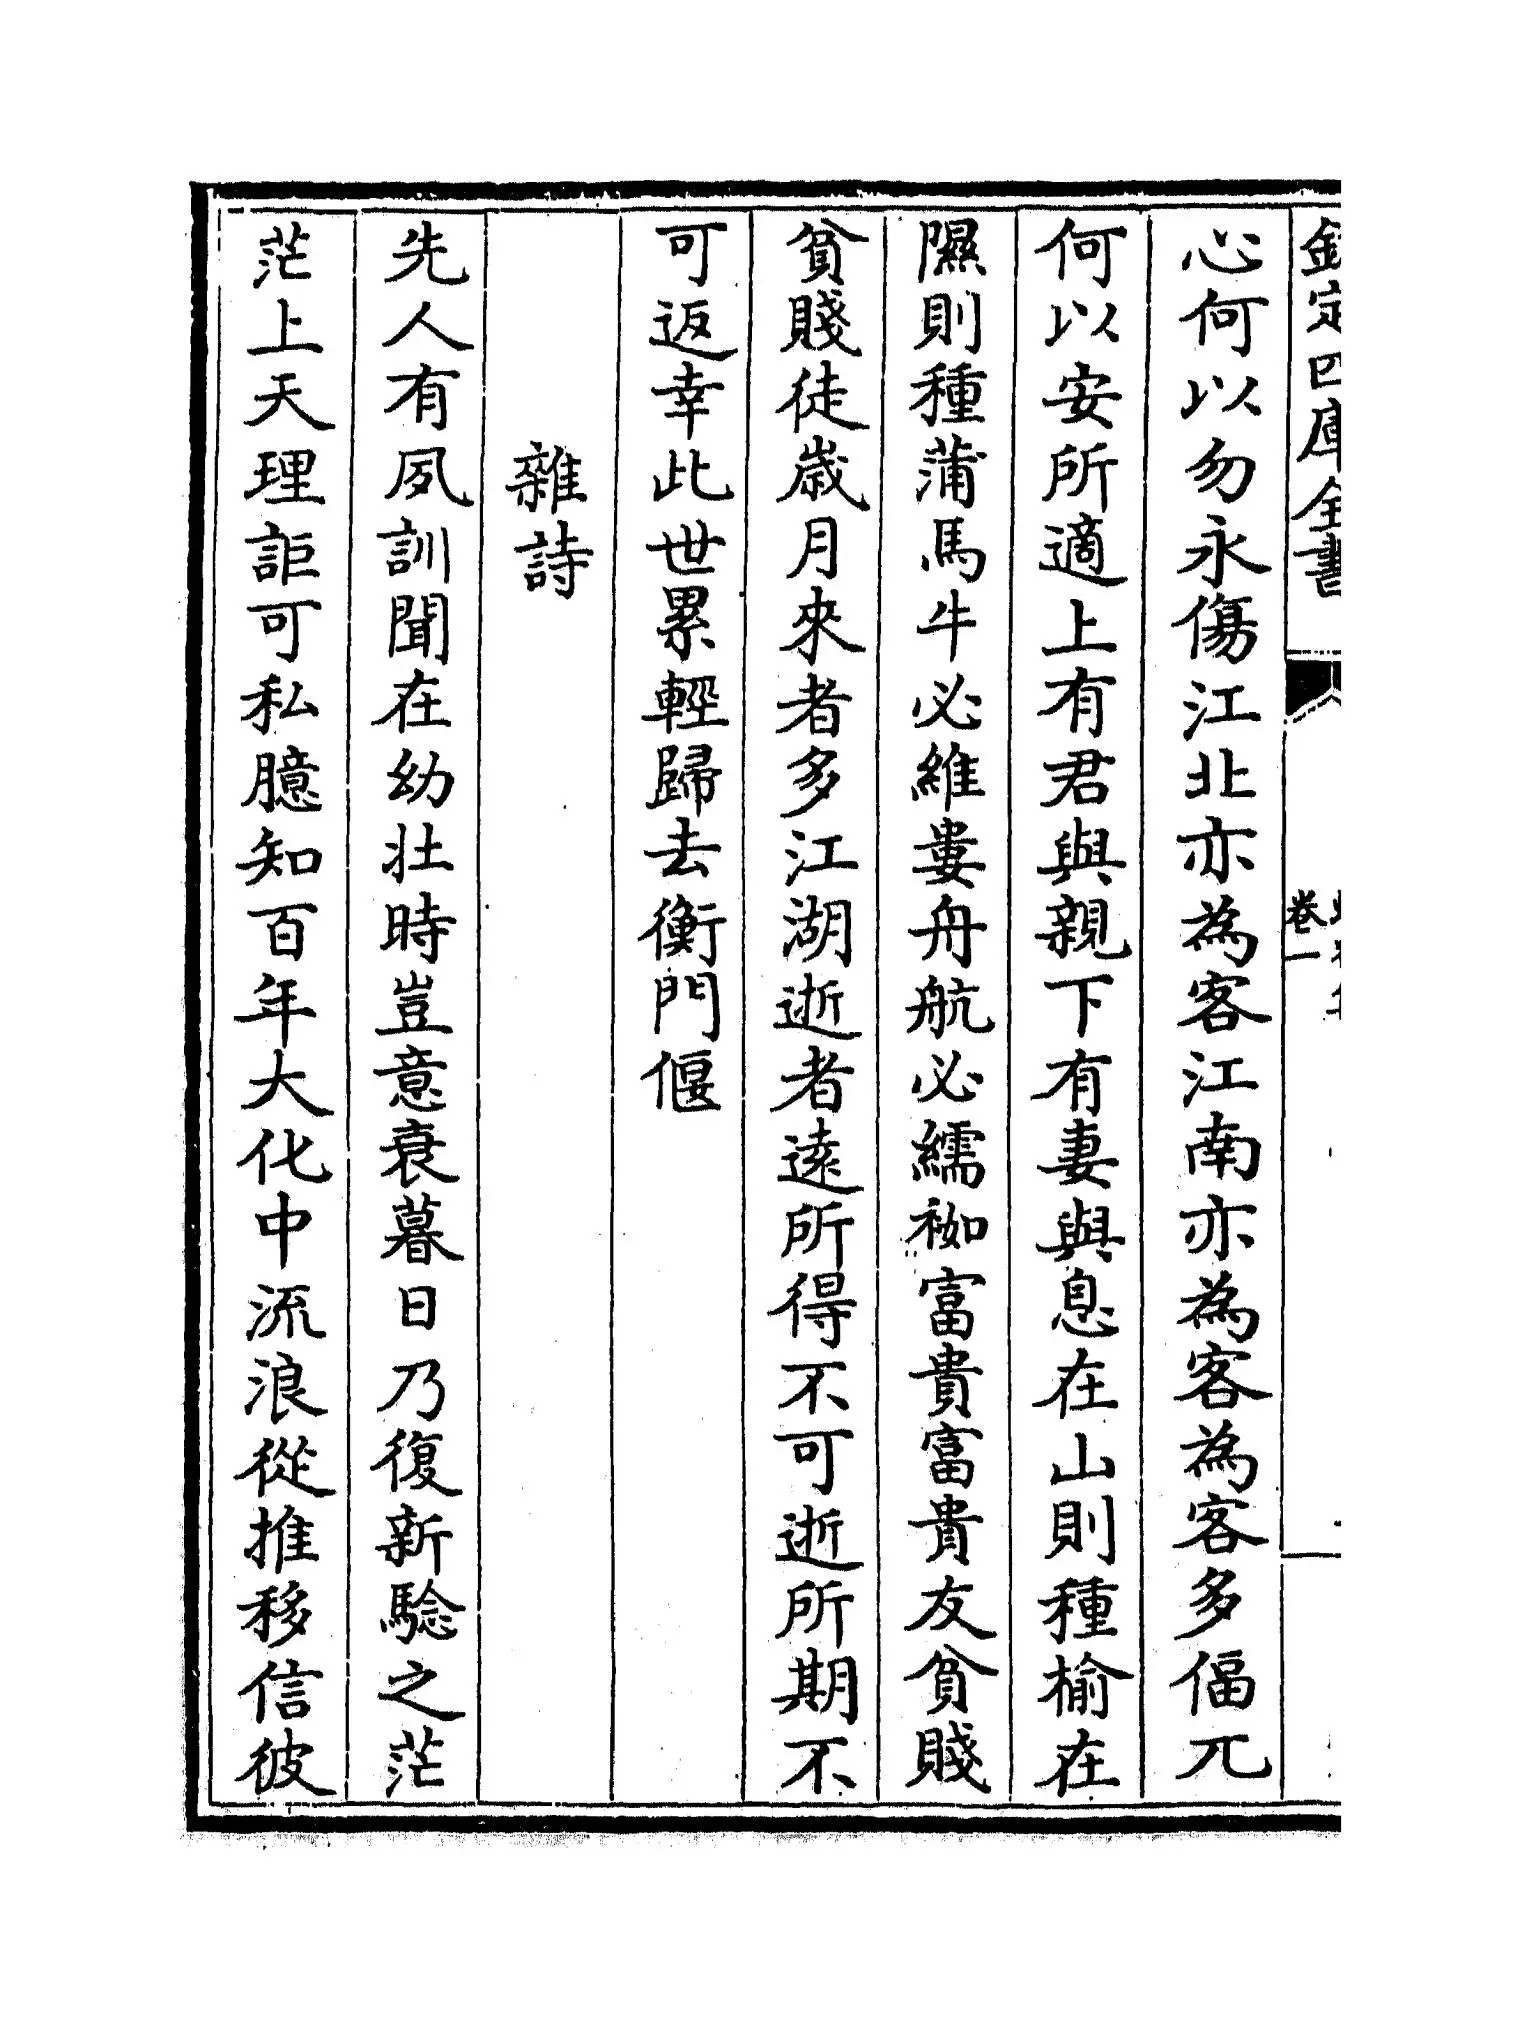 欽定四庫全書
卷一
心何以勿永傷江北亦為客江南亦為客為客多偪兀
何以安所適上有君與親下有妻與息在山則種榆在
隰則種蒲馬牛必維婁舟航必繻袽富貴富貴友貧賤
貧賤徒歲月來者多江湖逝者遠所得不可逝所期不
可返幸此世累輕歸去衡門偃
雜詩
先人有夙訓聞在幼壯時豈意衰暮日乃復新驗之茫
茫上天理詎可私臆知百年大化中流浪從推移信彼